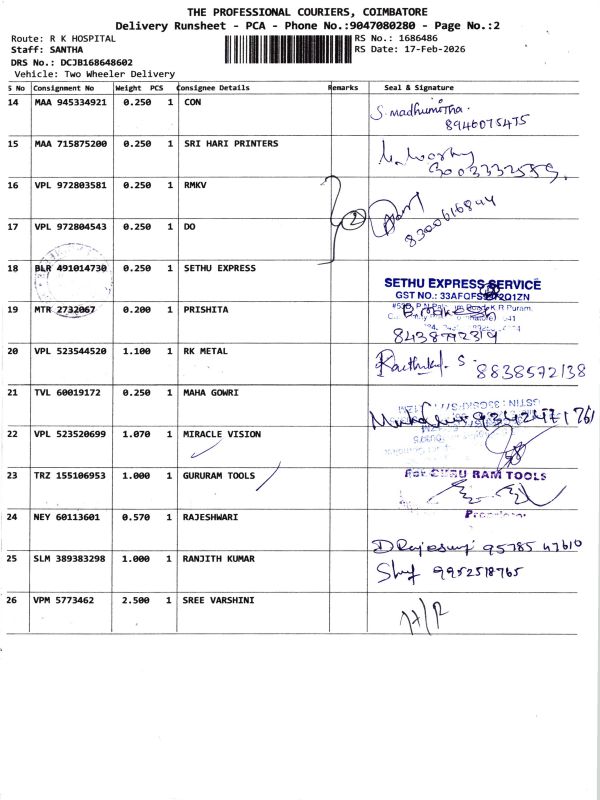 THE PROFESSIONAL COURIERS, COIMBATORE
Delivery Runsheet - PCA - Phone No.:9047080280 - Page No.:2
Route: R K HOSPITAL
RS No.: 1686486
Staff: SANTHA
RS Date: 17-Feb-2026
DRS No.: DCJB168648602
Vehicle: Two Wheeler Delivery
S No Consignment No Weight PCS Consignee Details Remarks Seal & Signature
14 MAA 945334921 0.250 1 CON S. madhumitha.
8946075475
15 MAA 715875200 0.250 1 SRI HARI PRINTERS
16 VPL 972803581 0.250 1 RMKV
2
8300616844
17 VPL 972804543 0.250 1 DO
18 BLR 491014730 0.250 1 SETHU EXPRESS
SETHU EXPRESS SERVICE
GST NO.: 33AFQFS
19 MTR 2732067 0.200 1 PRISHITA
8438792319
20 VPL 523544520 1.100 1 RK METAL S. 8838572138
21 TVL 60019172 0.250 1 MAHA GOWRI
22 VPL 523520699 1.070 1 MIRACLE VISION
23 TRZ 155106953 1.000 1 GURURAM TOOLS For GURU RAM TOOLS
Proprietor
24 NEY 60113601 0.570 1 RAJESHWARI
D Rajeswari 95785 47610
25 SLM 389383298 1.000 1 RANJITH KUMAR 9952518765
26 VPM 5773462 2.500 1 SREE VARSHINI H/R